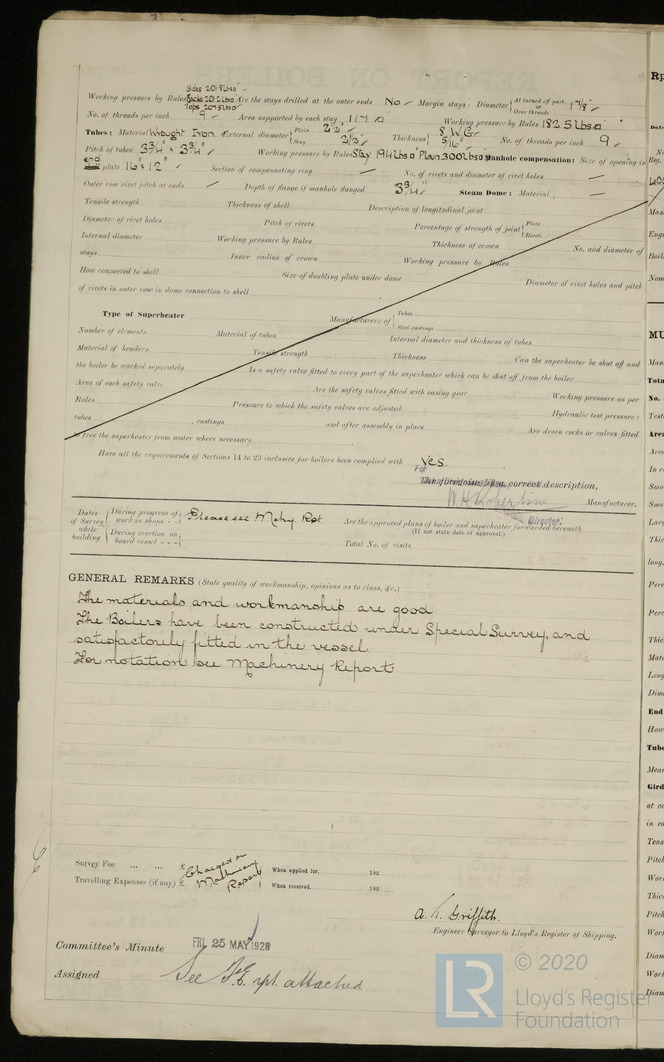 Sides 201.8 Lbs□
Working pressure by Rules Backs 201.2 Lbs□ Are the stays drilled at the outer ends No Margin stays: Diameter { At turned off part, or Over threads 1 7/8"
Tops 204.5 Lbs□
No. of threads per inch 9 Area supported by each stay 117 □" Working pressure by Rules 182.5 Lbs□"
Tubes: Material Wrought Iron External diameter { Plain 2½" Stay 2½" Thickness { 8 W.G. 5/16" No. of threads per inch 9
Pitch of tubes 3¾" x 3¾" Working pressure by Rules Stay 194 Lbs□" Plain 300 Lbs□" Manhole compensation: Size of opening in
end plate 16" x 12" Section of compensating ring — No. of rivets and diameter of rivet holes —
Outer row rivet pitch at ends — Depth of flange if manhole flanged 3¾" Steam Dome: Material —
Tensile strength Thickness of shell Description of longitudinal joint
Diameter of rivet holes Pitch of rivets Percentage of strength of joint { Plate Rivets
Internal diameter Working pressure by Rules Thickness of crown No. and diameter of
stays Inner radius of crown Working pressure by Rules
How connected to shell Size of doubling plate under dome Diameter of rivet holes and pitch
of rivets in outer row in dome connection to shell
Type of Superheater Manufacturers of { Tubes Steel castings
Number of elements Material of tubes Internal diameter and thickness of tubes
Material of headers Tensile strength Thickness Can the superheater be shut off and
the boiler be worked separately Is a safety valve fitted to every part of the superheater which can be shut off from the boiler
Area of each safety valve Are the safety valves fitted with easing gear Working pressure as per
Rules Pressure to which the safety valves are adjusted Hydraulic test pressure:
tubes , castings and after assembly in place Are drain cocks or valves fitted
to free the superheater from water where necessary
Have all the requirements of Sections 14 to 23 inclusive for boilers been complied with Yes.
For
The foregoing is a correct description,
Manufacturer.
Director.
Dates of Survey while building { During progress of work in shops - - { During erection on board vessel - - - Please see Mchy. Rpt. Are the approved plans of boiler and superheater forwarded herewith
(If not state date of approval.)
Total No. of visits
GENERAL REMARKS (State quality of workmanship, opinions as to class, &c.)
The materials and workmanship are good.
The Boilers have been constructed under Special Survey, and
satisfactorily fitted in the vessel.
For notation see Machinery Report.
Survey Fee ... ... £ Charged on When applied for, 192
Travelling Expenses (if any) £ Machinery Report When received, 192
A. R. Griffith.
Engineer Surveyor to Lloyd's Register of Shipping.
Committee's Minute FRI. 25 MAY 1928
Assigned See F.E. rpt. attached
© 2020
LR Lloyd's Register
Foundation